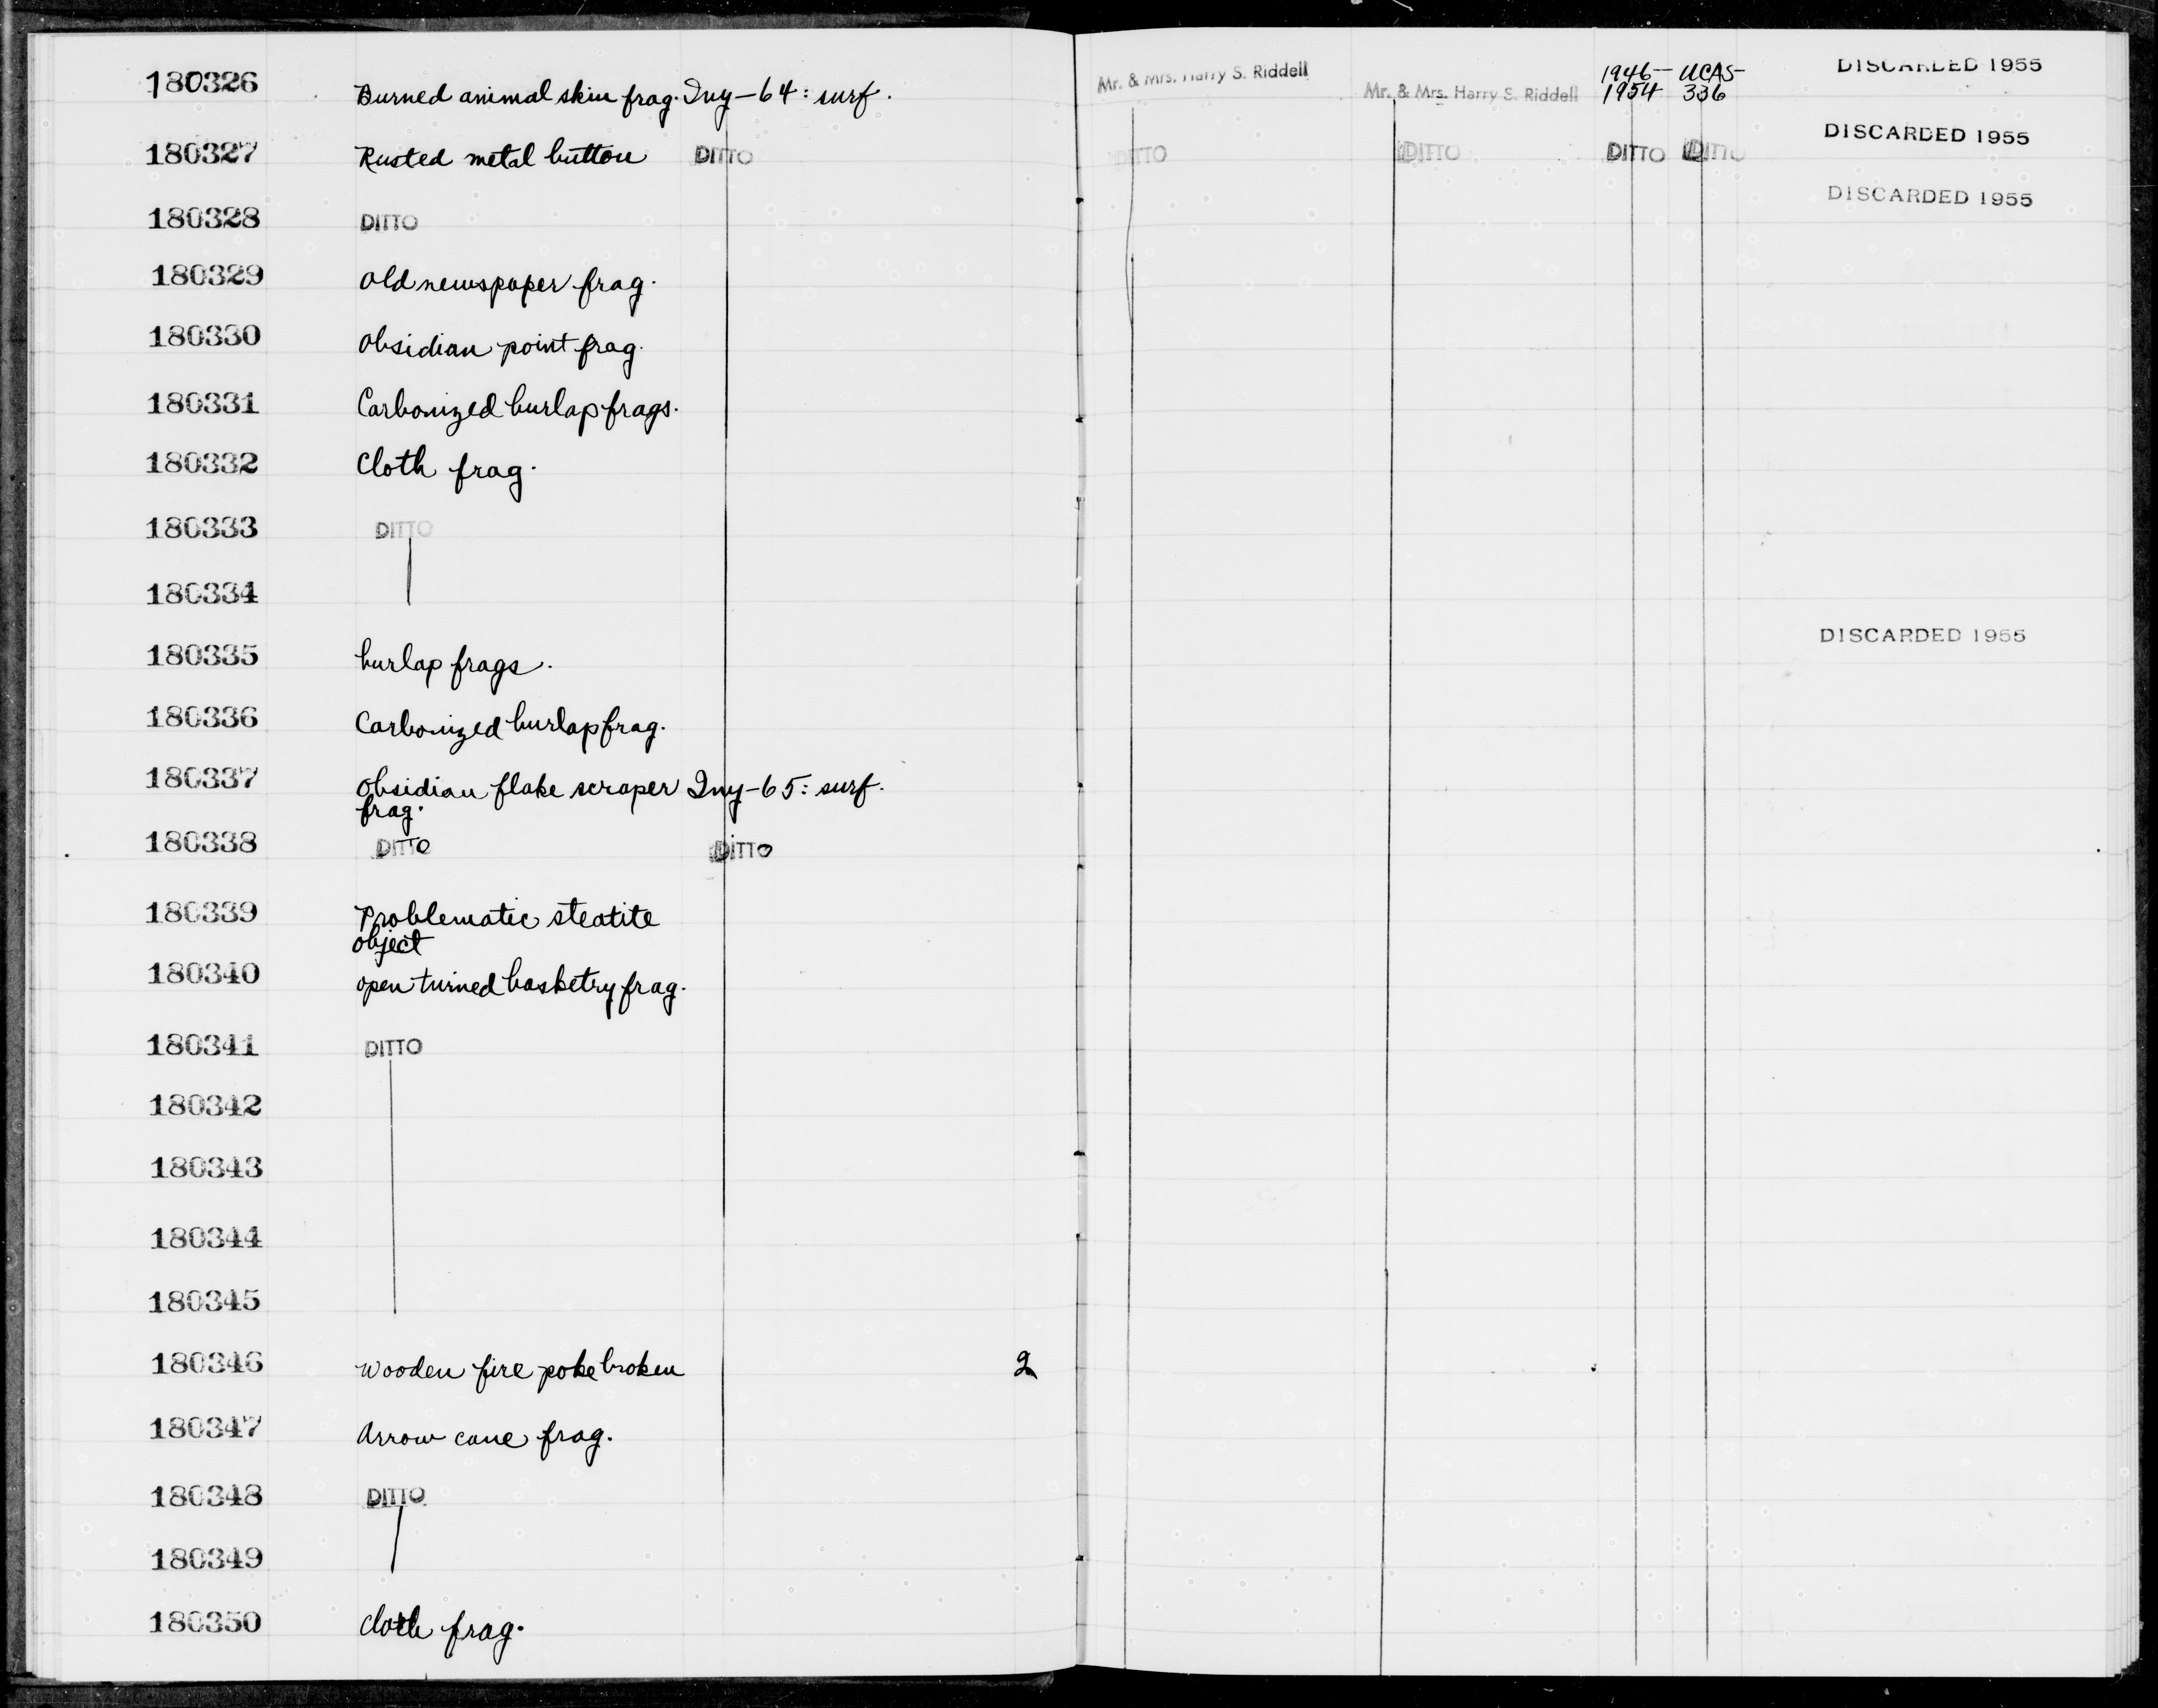 180326 Burned animal skin frag. Iny-64: surf. Mr. & Mrs. Harry S. Riddell Mr. & Mrs. Harry S. Riddell 1946- UCAS- DISCARDED 1955
1954 336
180327 Rusted metal button DITTO DITTO DITTO DITTO DITTO DISCARDED 1955
180328 DITTO DISCARDED 1955
180329 Old newspaper frag.
180330 Obsidian point frag.
180331 Carbonized burlap frags.
180332 Cloth frag.
180333 DITTO
180334
180335 burlap frags. DISCARDED 1955
180336 Carbonized burlap frag.
180337 Obsidian flake scraper Iny-65: surf.
frag.
180338 DITTO DITTO
180339 Problematic steatite
object
180340 open turned basketry frag.
180341 DITTO
180342
180343
180344
180345
180346 wooden fire poke broken 2
180347 Arrow cane frag.
180348 DITTO
180349
180350 cloth frag.